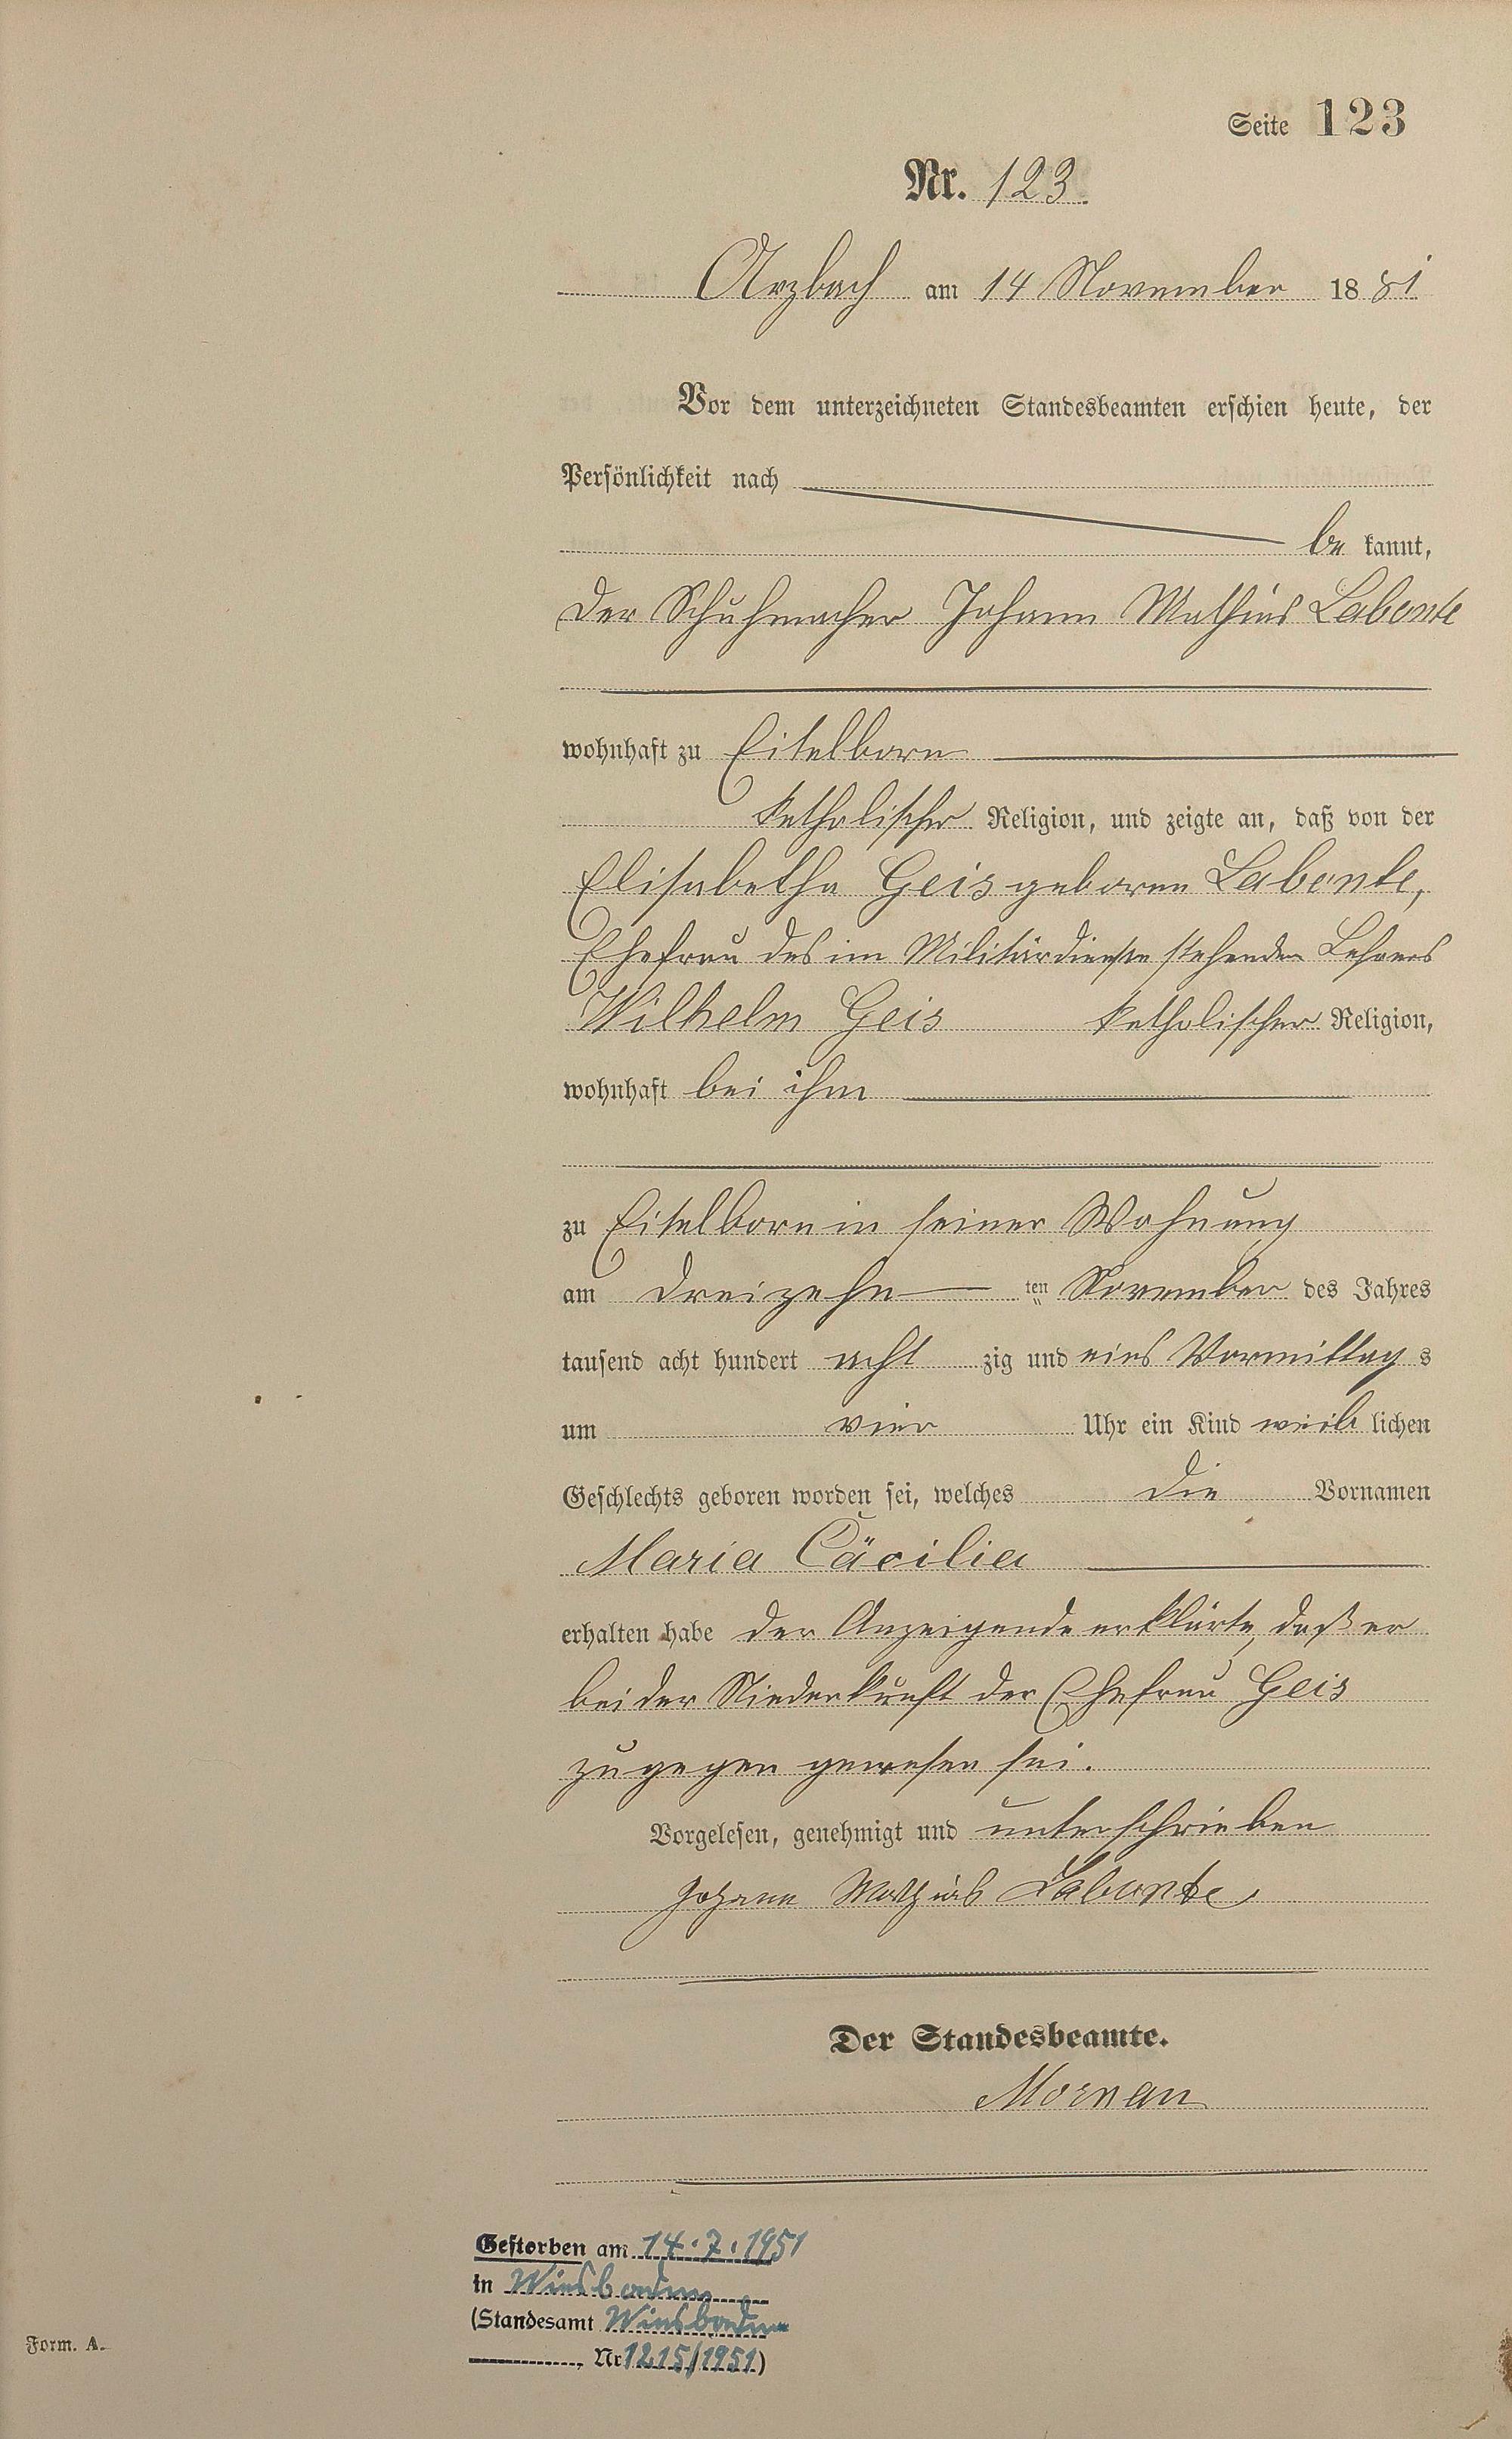 Seite 123
Nr. 123.
Arzbach am 14 November 1881
Vor dem unterzeichneten Standesbeamten erschien heute, der
Persönlichkeit nach
be kannt,
der Schuhmacher Johann Mathias Labonte
wohnhaft zu Eitelborn
katholischer Religion, und zeigte an, daß von der
Elisabetha Geis geborene Labonte,
Ehefrau des im Militärdienste stehenden Lehrers
Wilhelm Geis katholischer Religion,
wohnhaft bei ihm
zu Eitelborn in seiner Wohnung
am dreizehn ten November des Jahres
tausend acht hundert acht zig und eins Vormittag s
um vier Uhr ein Kind weib lichen
Geschlechts geboren worden sei, welches die Vornamen
Maria Cäcilia
erhalten habe der Anzeigende erklärte, daß er
bei der Niederkunft der Ehefrau Geis
zugegen gewesen sei.
Vorgelesen, genehmigt und unterschrieben
Johann Mathias Labonte
Der Standesbeamte.
Gestorben am 14.7.1951
in Wiesbaden
(Standesamt Wiesbaden
Nr 1215/1951)
Form. A.